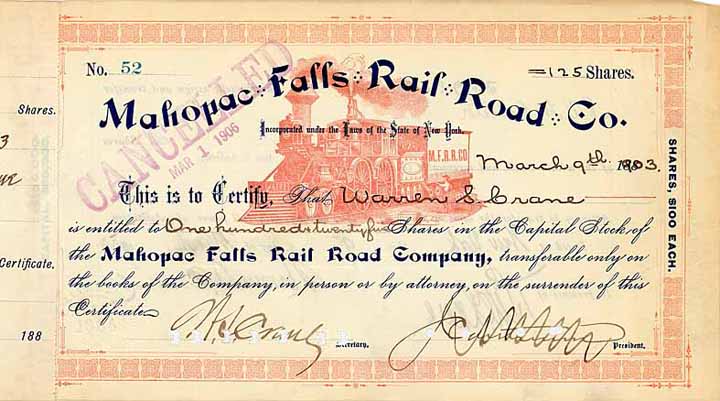 No. 52
=125 Shares.
Shares.
Mahopac Falls Rail Road Co.
CANCELLED
MAR 1 1906
Incorporated under the Laws of the State of New York.
M.F.R.R.CO
March 9th 1903.
This is to Certify, That Warren S. Crane
is entitled to One hundred twenty five Shares in the Capital Stock of
the Mahopac Falls Rail Road Company, transferable only on
the books of the Company, in person or by attorney, on the surrender of this
Certificate.
Secretary.
President.
SHARES, $100 EACH.
Certificate.
188